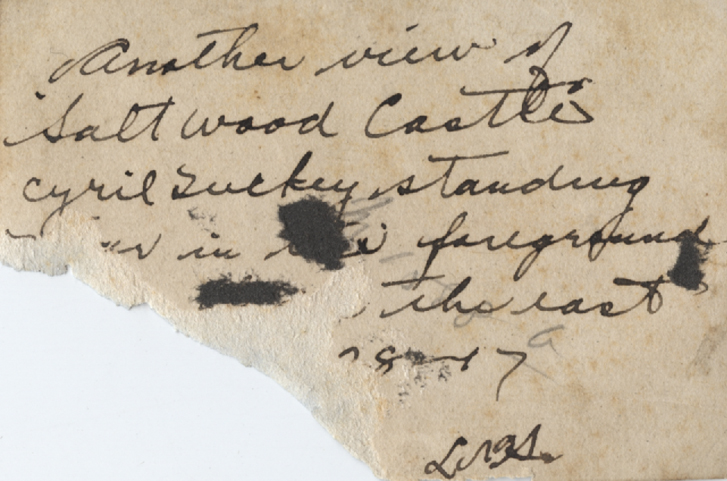 Another view of
Saltwood Castle
Cyril Suckey standing
in foreground
the east
8-17